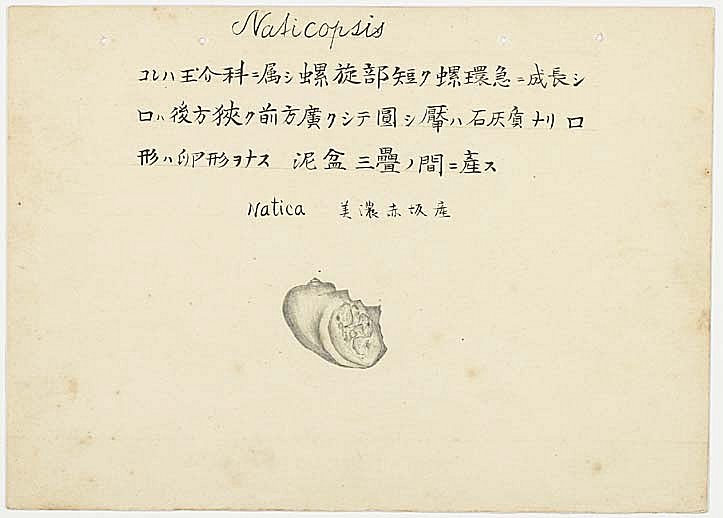 Naticopsis
コレハ玉介科ニ属シ螺旋部短ク螺環急ニ成長シ
口ハ後方狹ク前方廣クシテ圓シ厴ハ石灰質ナリ 口
形ハ卵形ヲナス 泥盆三疊ノ間ニ產ス
Natica 美濃赤坂産